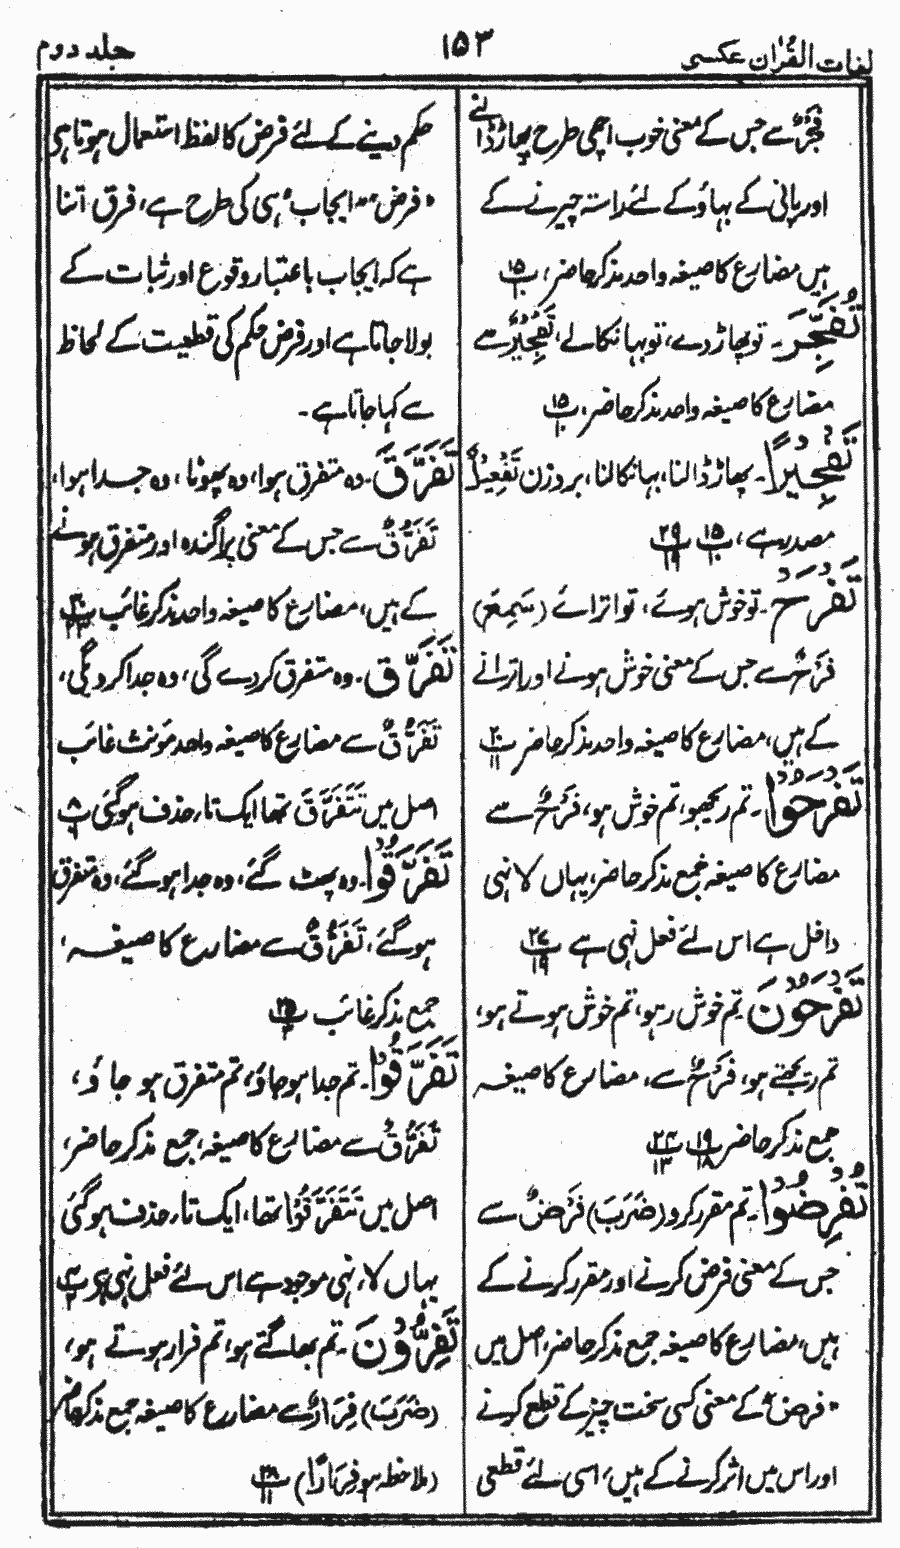 لغات القرآن عکسی
۱۵۳
جلد دوم
فَجْرٌ سے جس کے معنی خوب اچھی طرح پھاڑ ڈالنے
اور پانی کے بہاؤ کے لئے راستہ چیرنے کے
ہیں مضارع کا صیغہ واحد مذکر حاضر، ۱۵
تُفَجِّرَ۔ تو پھاڑ دے، تو بہا نکالے، تَفْجِیْرٌ سے
مضارع کا صیغہ واحد مذکر حاضر، ۱۵
تَفْجِیْرًا۔ پھاڑ ڈالنا، بہا نکالنا، بروزن تَفْعِیْلٌ
مصدر ہے، ۱۵ ۲۹
تَفْرَحْ۔ تو خوش ہوئے، تو اترائے (سَمِعَ)
فَرَحٌ سے جس کے معنی خوش ہونے اور اترانے
کے ہیں، مضارع کا صیغہ واحد مذکر حاضر ۲۰
تَفْرَحُوْا۔ تم ریجھو، تم خوش ہو، فَرَحٌ سے
مضارع کا صیغہ جمع مذکر حاضر، یہاں لا نہی
داخل ہے اس لئے فعل نہی ہے ۲۷
تَفْرَحُوْنَ۔ تم خوش رہو، تم خوش ہوتے ہو،
تم رتجھتے ہو، فَرَحٌ سے، مضارع کا صیغہ
جمع مذکر حاضر ۱۹ ۲۴
تَفْرِضُوْا۔ تم مقرر کرو (ضَرَبَ) فَرْضٌ سے
جس کے معنی فرض کرنے اور مقرر کرنے کے
ہیں، مضارع کا صیغہ جمع مذکر حاضر، اصل میں
"فرض" کے معنی کسی سخت چیز کے قطع کرنے
اور اس میں اثر کرنے کے ہیں، اسی لئے قطعی
حکم دینے کے لئے فرض کا لفظ استعمال ہوتا ہے
"فرض" "ایجاب" ہی کی طرح ہے، فرق اتنا
ہے کہ ایجاب باعتبار وقوع اور ثبات کے
بولا جاتا ہے اور فرض حکم کی قطعیت کے لحاظ
سے کہا جاتا ہے۔
تَفَرَّقَ۔ وہ متفرق ہوا، وہ پھوٹا، وہ جدا ہوا،
تَفَرُّقٌ سے جس کے معنی پراگندہ اور متفرق ہونے
کے ہیں، مضارع کا صیغہ واحد مذکر غائب
تَفَرَّقَ۔ وہ متفرق کردے گی، وہ جدا کردیگی،
تَفَرُّقٌ سے مضارع کا صیغہ واحد مؤنث غائب
اصل میں تَتَفَرَّقَ تھا ایک تاء حذف ہوگئی ۸
تَفَرَّقُوْا۔ وہ پھٹ گئے، وہ جدا ہوگئے، وہ متفرق
ہوگئے، تَفَرُّقٌ سے مضارع کا صیغہ،
جمع مذکر غائب ۲۵
تَفَرَّقُوْا۔ تم جدا ہوجاؤ، تم متفرق ہو جاؤ،
تَفَرُّقٌ سے مضارع کا صیغہ، جمع مذکر حاضر،
اصل میں تَتَفَرَّقُوْا تھا، ایک تاء حذف ہوگئی
یہاں لاء نہی موجود ہے اس لئے فعل نہی ہے
تَفِرُّوْنَ۔ تم بھاگتے ہو، تم فرار ہوتے ہو،
(ضَرَبَ) فِرَارٌ سے مضارع کا صیغہ جمع مذکر حاضر
(ملاحظہ ہو فِرَارًا) ۲۸